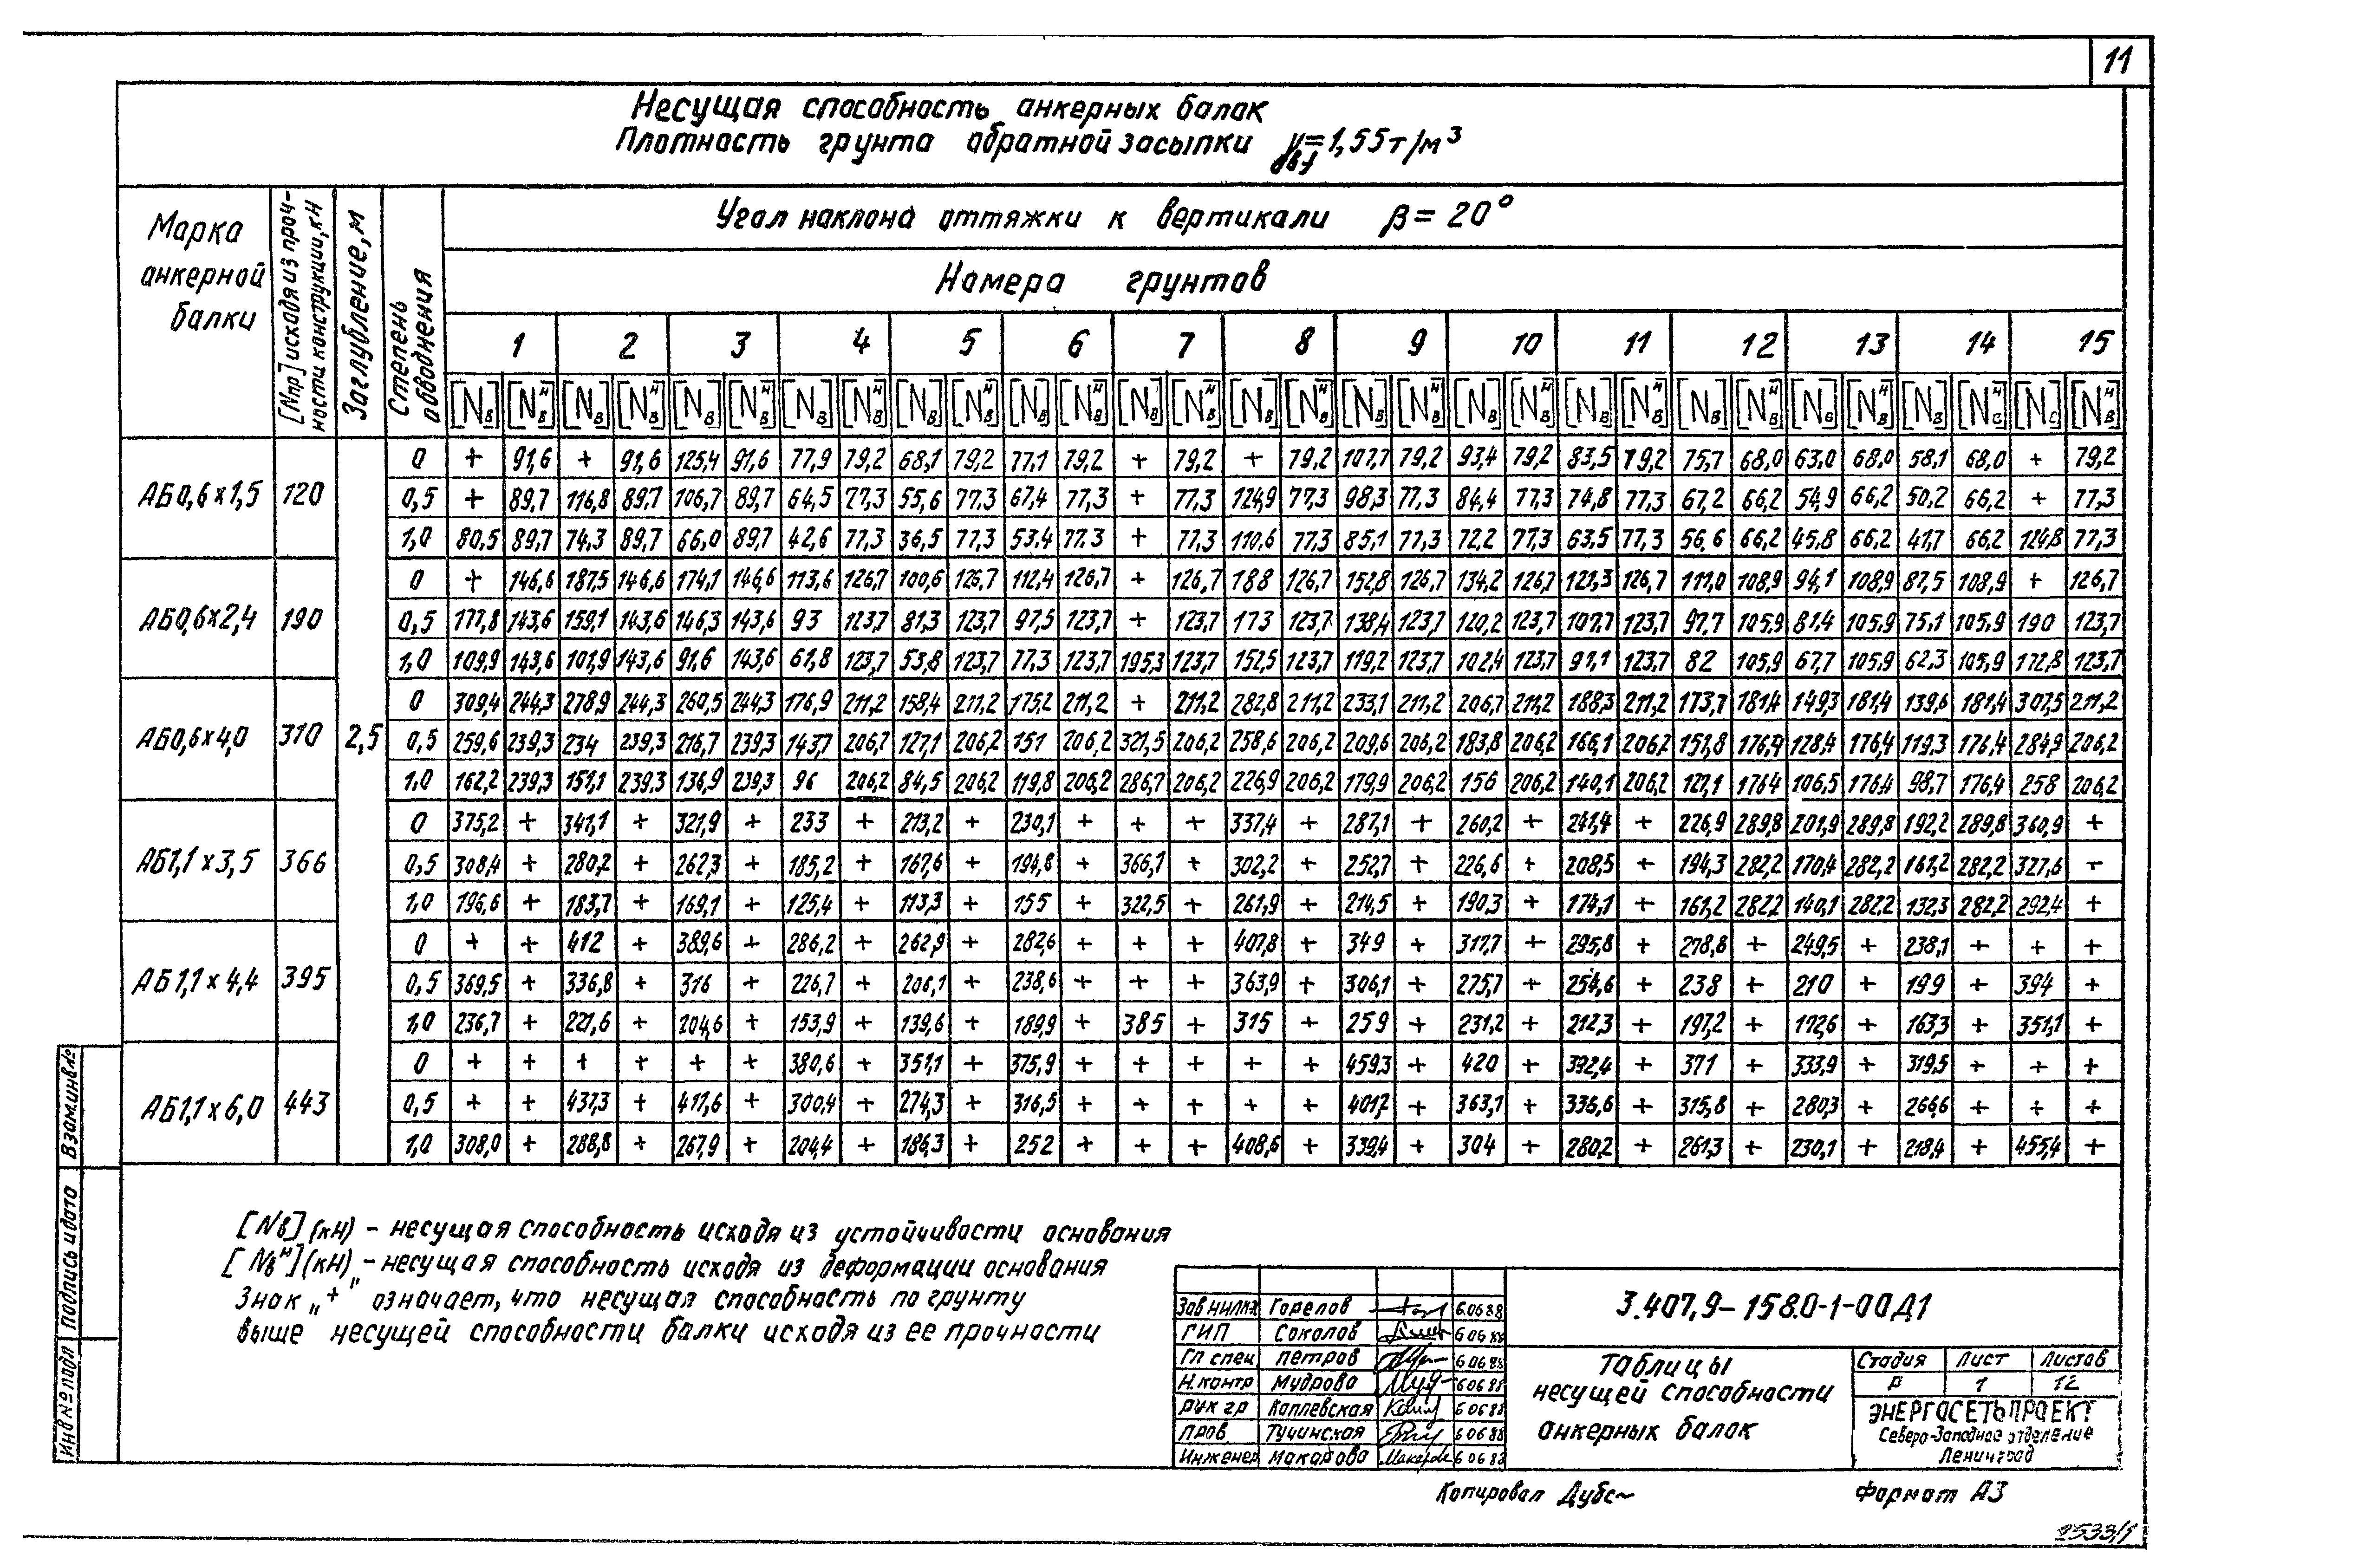 11
Несущая способность анкерных балок
Плотность грунта обратной засыпки γ = 1,55 т/м³
Марка анкерной балки
[Nпр] исходя из прочности конструкции, кН
Заглубление, м
Степень обводнения
Угол наклона оттяжки к вертикали β = 20°
Номера грунтов
1 2 3 4 5 6 7 8 9 10 11 12 13 14 15
[Nв] [Nвᴴ] [Nв] [Nвᴴ] [Nв] [Nвᴴ] [Nв] [Nвᴴ] [Nв] [Nвᴴ] [Nв] [Nвᴴ] [Nв] [Nвᴴ] [Nв] [Nвᴴ] [Nв] [Nвᴴ] [Nв] [Nвᴴ] [Nв] [Nвᴴ] [Nв] [Nвᴴ] [Nв] [Nвᴴ] [Nв] [Nсᴴ] [Nс] [Nвᴴ]
АБ0,6х1,5 120
0 + 91,6 + 91,6 125,4 91,6 77,9 79,2 68,1 79,2 77,1 79,2 + 79,2 + 79,2 107,7 79,2 93,4 79,2 83,5 79,2 75,7 68,0 63,0 68,0 58,1 68,0 + 79,2
0,5 + 89,7 116,8 89,7 106,7 89,7 64,5 77,3 55,6 77,3 67,4 77,3 + 77,3 124,9 77,3 98,3 77,3 84,4 77,3 74,8 77,3 67,2 66,2 54,9 66,2 50,2 66,2 + 77,3
1,0 80,5 89,7 74,3 89,7 66,0 89,7 42,6 77,3 36,5 77,3 53,4 77,3 + 77,3 110,6 77,3 85,1 77,3 72,2 77,3 63,5 77,3 56,6 66,2 45,8 66,2 41,7 66,2 124,8 77,3
АБ0,6х2,4 190
0 + 146,6 187,5 146,6 174,1 146,6 113,6 126,7 100,6 126,7 112,4 126,7 + 126,7 188 126,7 152,8 126,7 134,2 126,7 121,3 126,7 111,0 108,9 94,1 108,9 87,5 108,9 + 126,7
0,5 177,8 143,6 159,1 143,6 146,3 143,6 93 123,7 81,3 123,7 97,5 123,7 + 123,7 173 123,7 138,4 123,7 120,2 123,7 107,7 123,7 97,7 105,9 81,4 105,9 75,1 105,9 190 123,7
1,0 109,9 143,6 101,9 143,6 91,6 143,6 61,8 123,7 53,8 123,7 77,3 123,7 195,3 123,7 152,5 123,7 119,2 123,7 102,4 123,7 91,1 123,7 82 105,9 67,7 105,9 62,3 105,9 172,8 123,7
АБ0,6х4,0 310 2,5
0 309,4 244,3 278,9 244,3 260,5 244,3 176,9 211,2 158,4 211,2 175,2 211,2 + 211,2 282,8 211,2 233,1 211,2 206,7 211,2 188,3 211,2 173,7 181,4 149,3 181,4 139,6 181,4 307,5 211,2
0,5 259,6 239,3 234 239,3 216,7 239,3 143,7 206,2 127,1 206,2 151 206,2 321,5 206,2 258,6 206,2 209,6 206,2 183,8 206,2 166,1 206,2 151,8 176,4 128,4 176,4 119,3 176,4 284,9 206,2
1,0 162,2 239,3 151,1 239,3 136,9 239,3 96 206,2 84,5 206,2 119,8 206,2 286,7 206,2 226,9 206,2 179,9 206,2 156 206,2 140,1 206,2 127,1 176,4 106,5 176,4 98,7 176,4 258 206,2
АБ1,1х3,5 366
0 375,2 + 341,1 + 321,9 + 233 + 213,2 + 230,1 + + + 337,4 + 287,1 + 260,2 + 241,4 + 226,9 289,8 201,9 289,8 192,2 289,8 360,9 +
0,5 308,4 + 280,2 + 262,3 + 185,2 + 167,6 + 194,8 + 366,1 + 302,2 + 252,7 + 226,6 + 208,5 + 194,3 282,2 170,4 282,2 161,2 282,2 327,6 +
1,0 196,6 + 183,7 + 169,1 + 125,4 + 113,3 + 155 + 322,5 + 261,9 + 214,5 + 190,3 + 174,1 + 161,2 282,2 140,1 282,2 132,3 282,2 292,4 +
АБ1,1х4,4 395
0 + + 412 + 389,6 + 286,2 + 262,9 + 282,6 + + + 407,8 + 349 + 317,7 + 295,8 + 278,8 + 249,5 + 238,1 + + +
0,5 369,5 + 336,8 + 316 + 226,7 + 206,1 + 238,6 + + + 363,9 + 306,1 + 275,7 + 254,6 + 238 + 210 + 199 + 394 +
1,0 236,7 + 221,6 + 204,6 + 153,9 + 139,6 + 189,9 + 385 + 315 + 259 + 231,2 + 212,3 + 197,2 + 172,6 + 163,3 + 351,1 +
АБ1,1х6,0 443
0 + + + + + + 380,6 + 351,1 + 375,9 + + + + + 459,3 + 420 + 392,4 + 371 + 333,9 + 319,5 + + +
0,5 + + 437,3 + 411,6 + 300,4 + 274,3 + 316,5 + + + + + 401,7 + 363,1 + 336,6 + 315,8 + 280,3 + 266,6 + + +
1,0 308,0 + 288,8 + 267,9 + 204,4 + 186,3 + 252 + + + 408,6 + 339,4 + 304 + 280,2 + 261,3 + 230,1 + 218,4 + 455,4 +
[Nв] (кН) – несущая способность исходя из устойчивости основания
[Nвᴴ] (кН) – несущая способность исходя из деформации основания
Знак „+" означает, что несущая способность по грунту
выше несущей способности балки исходя из ее прочности
Взам.инв№
Подпись и дата
Инв № подл
Зав НИЛКЭ Горелов 6.06.88
ГИП Соколов 6 06 88
Гл спец Петров 6 06 88
Н.контр Мудрова 6 06 88
Рук гр Каплевская 6 06 88
Пров Тучинская 6 06 88
Инженер Макарова 6 06 88
3.407,9–158.0-1-00Д1
Таблицы
несущей способности
анкерных балок
Стадия Лист Листов
Р 1 12
ЭНЕРГОСЕТЬПРОЕКТ
Северо-Западное отделение
Ленинград
Копировал
Формат А3
2533/1